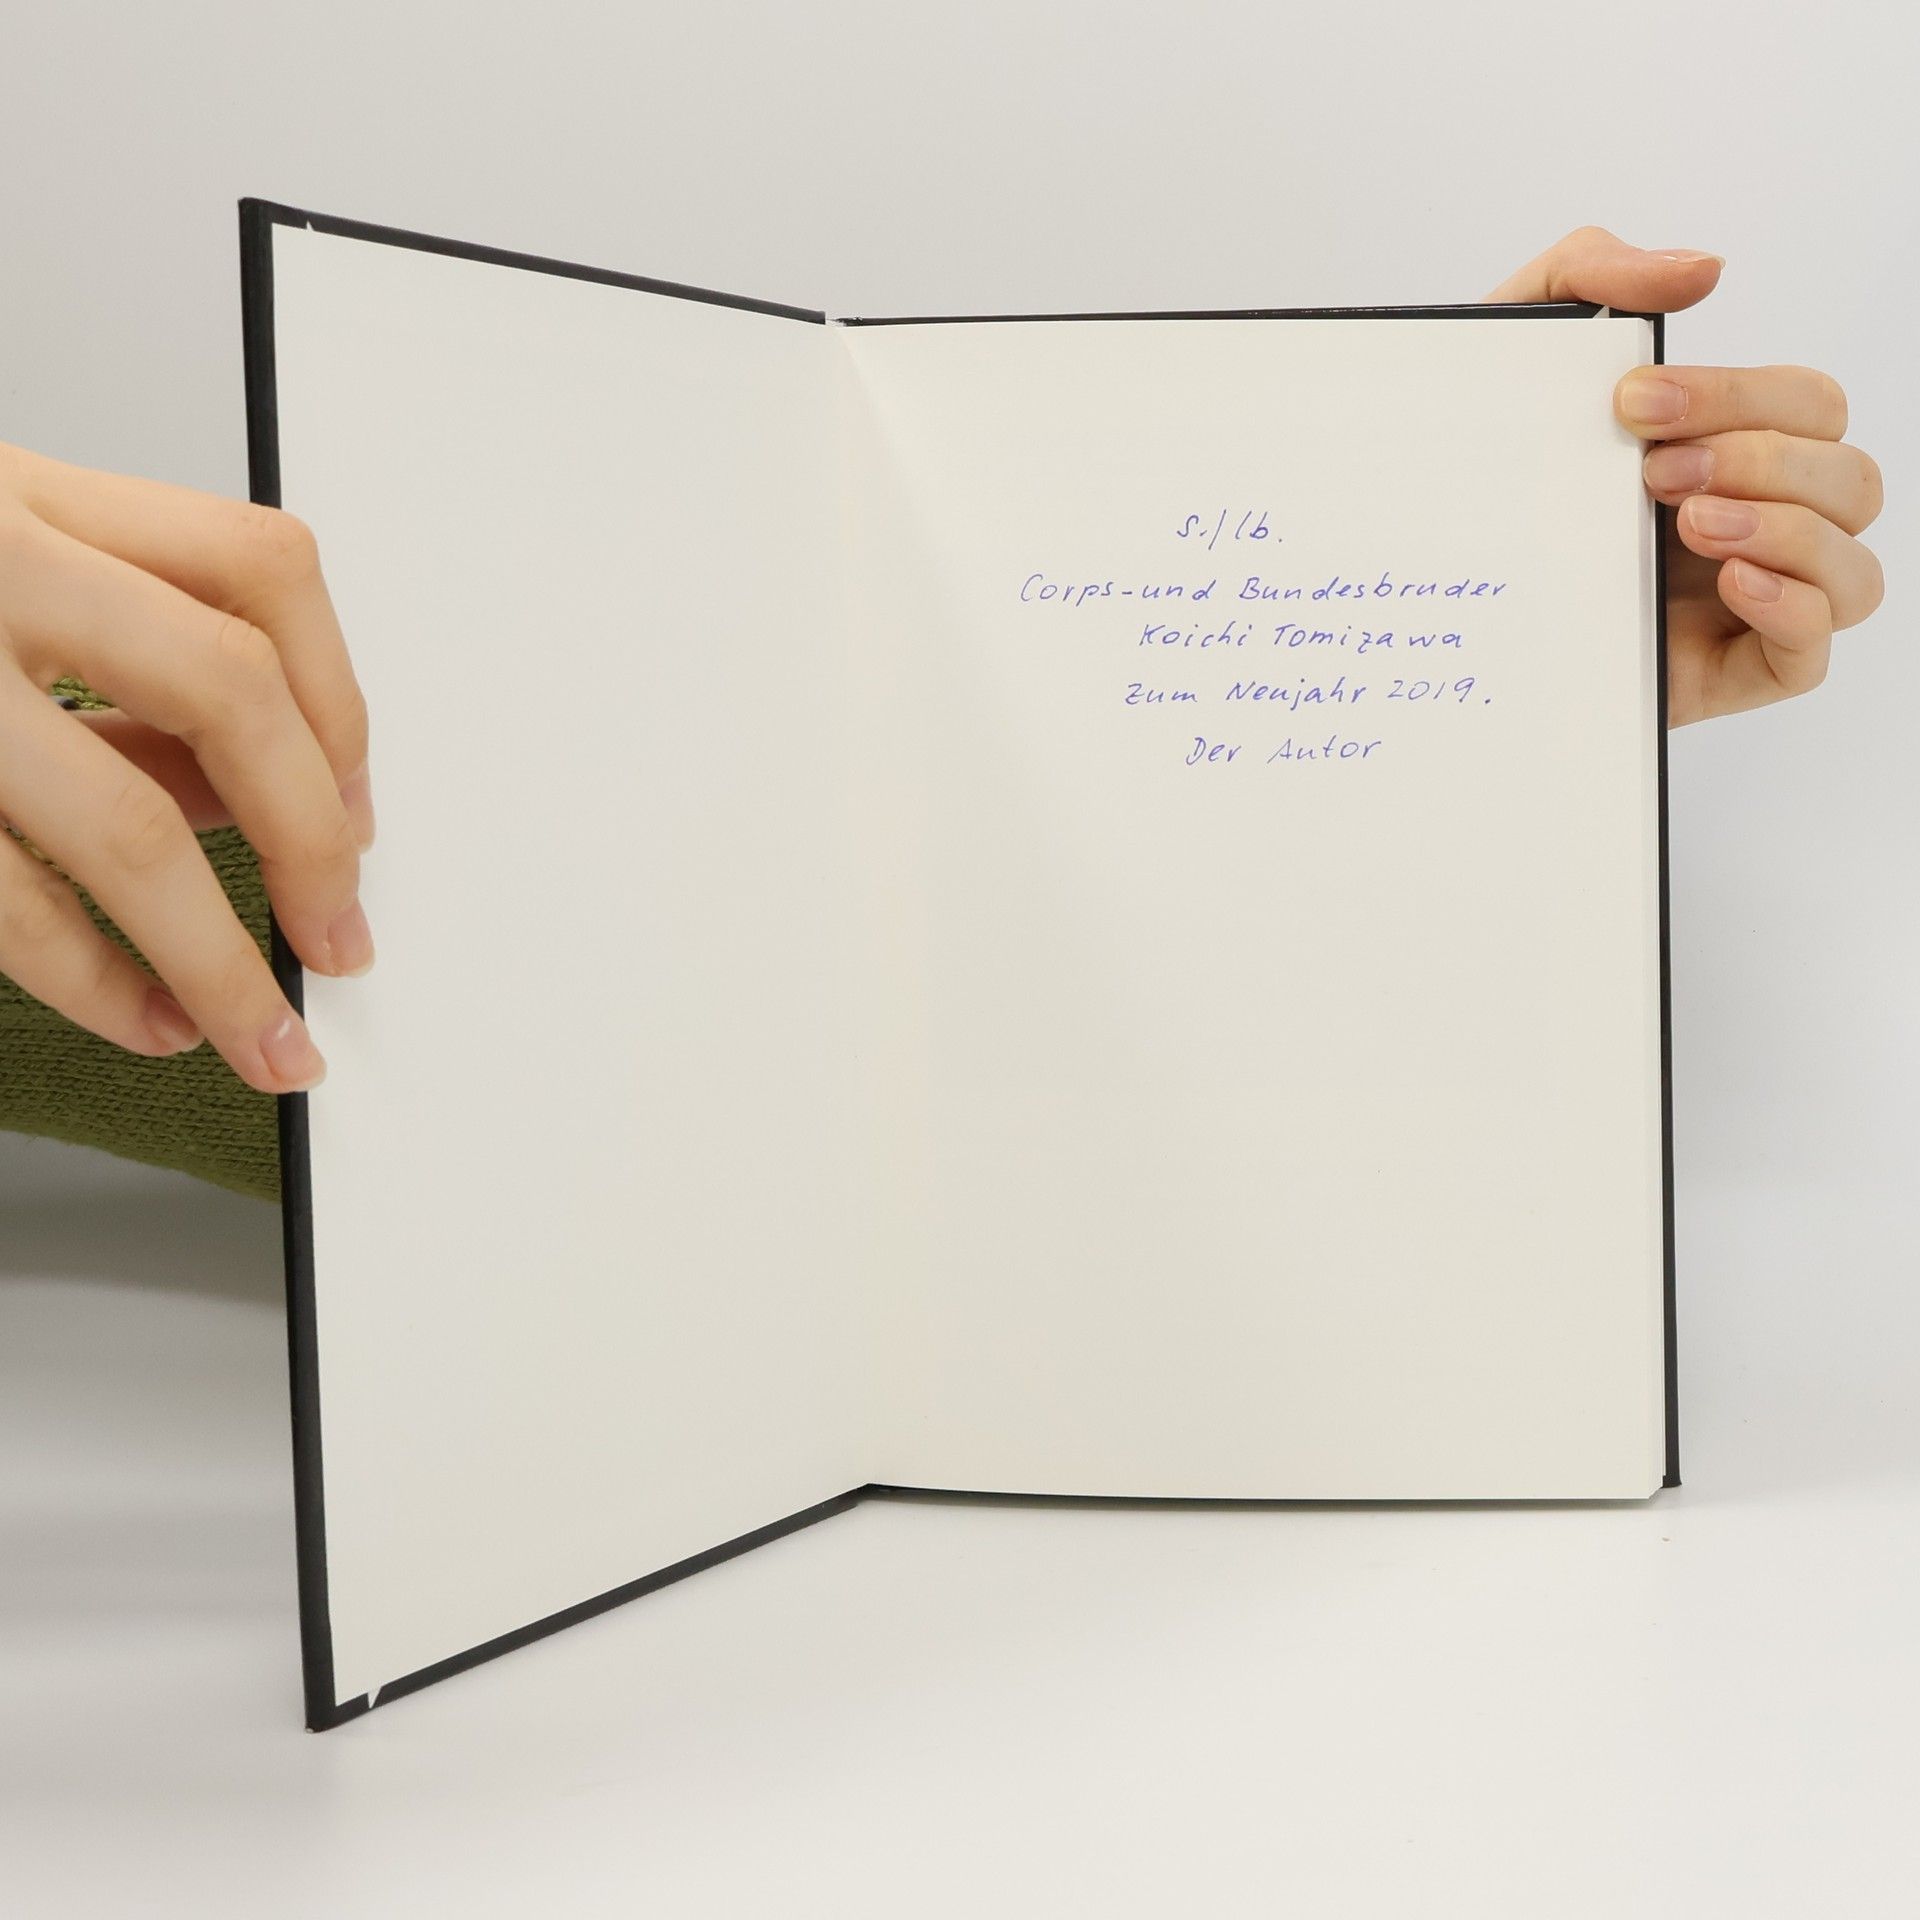 S./lb.
Corps- und Bundesbruder
Koichi Tomizawa
zum Neujahr 2019.
Der Autor